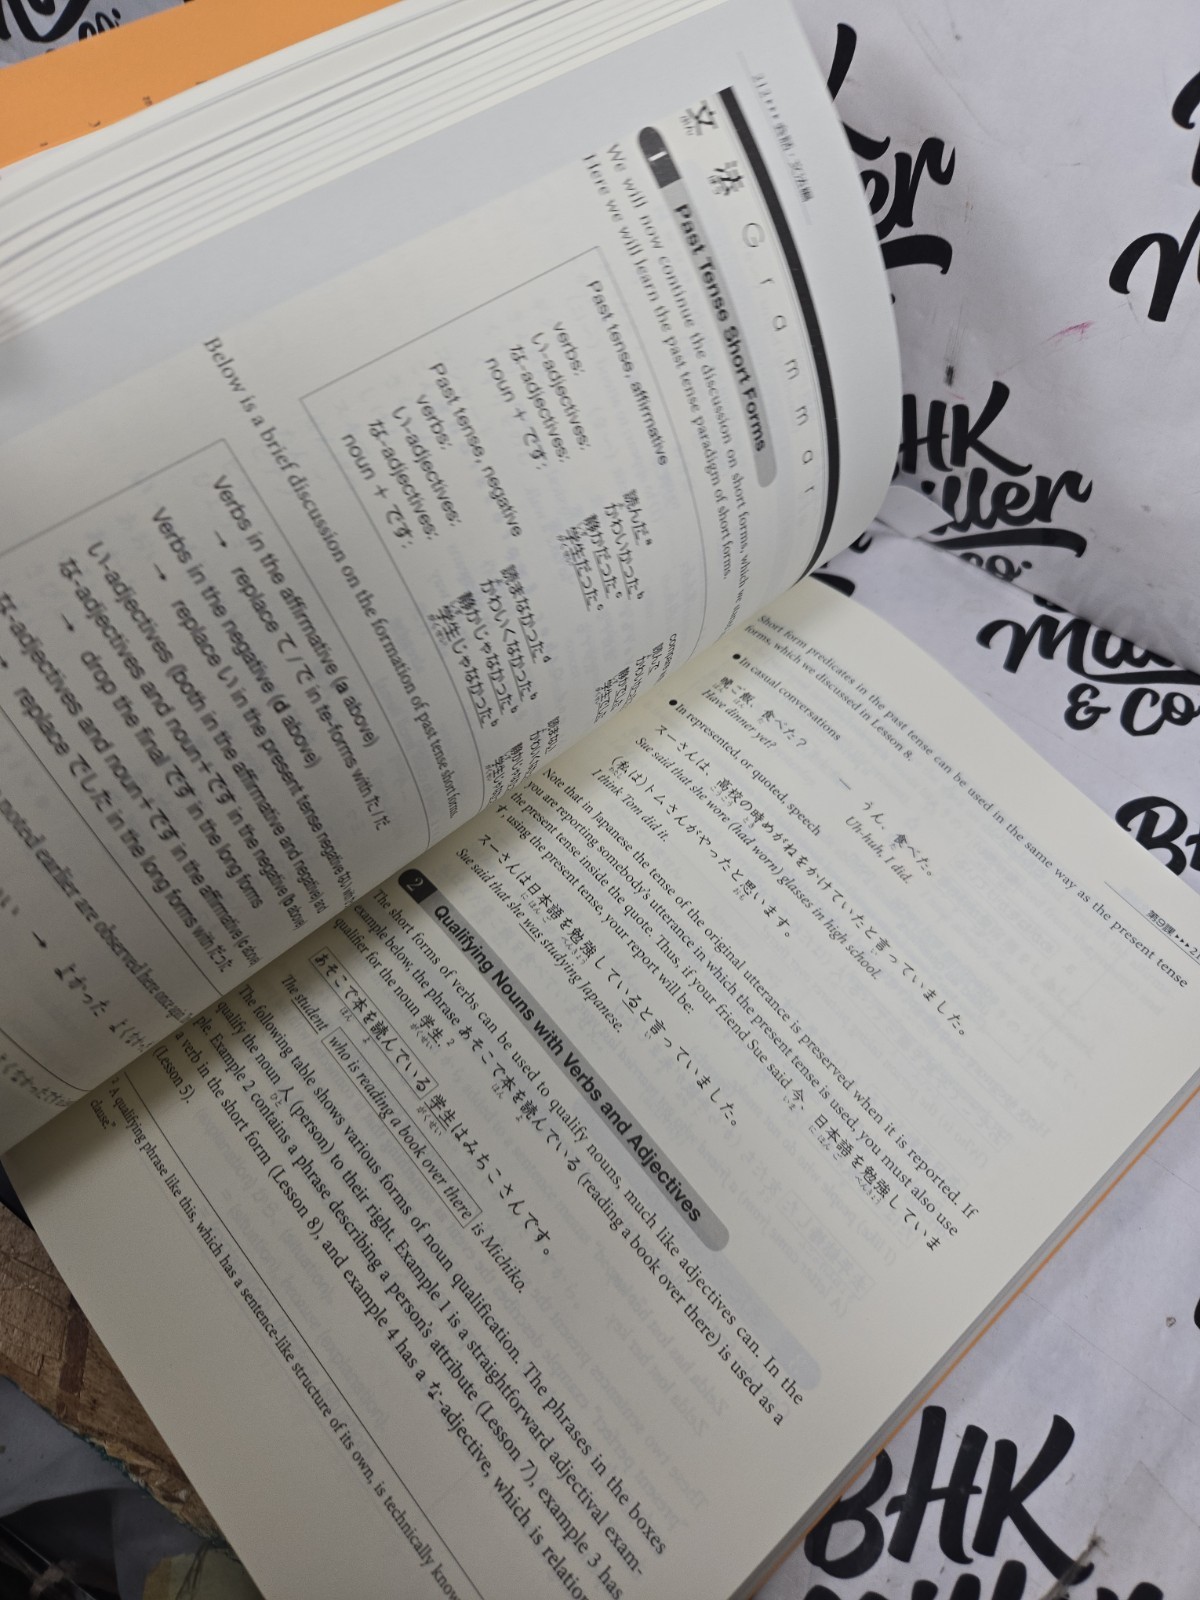 212 ▸▸▸ 会話・文法編
文法 Grammar
1 Past Tense Short Forms
We will now continue the discussion on short forms, which we
Here we will learn the past tense paradigm of short forms.
Past tense, affirmative
verbs: 読んだ。
い-adjectives: かわいかった。
な-adjectives: 静かだった。
noun + です: 学生だった。
Past tense, negative
verbs: 読まなかった。
い-adjectives: かわいくなかった。
な-adjectives: 静かじゃなかった。
noun + です: 学生じゃなかった。
Below is a brief discussion on the formation of past tense short forms.
Verbs in the affirmative (a above)
→ replace て/で in te-forms with た/だ
Verbs in the negative (d above)
→ replace い in the present tense negative
い-adjectives (both in the affirmative and negative)
→ drop the final です in the long forms
な-adjectives and noun + です in the affirmative (c above)
→ replace でした in the long forms with だった
noted earlier are observed here
→ よかった
第9課 ▸▸▸
Short form predicates in the past tense can be used in the same way as the present tense
forms, which we discussed in Lesson 8.
● In casual conversations
晩ご飯、食べた? — うん、食べた。
Have dinner yet? Uh-huh, I did.
● In represented, or quoted, speech
スーさんは、高校の時めがねをかけていたと言っていました。
Sue said that she wore (had worn) glasses in high school.
(私は)トムさんがやったと思います。
I think Tom did it.
Note that in Japanese the tense of the original utterance is preserved when it is reported. If
you are reporting somebody's utterance in which the present tense is used, you must also use
the present tense inside the quote. Thus, if your friend Sue said 今、日本語を勉強していま
す, using the present tense, your report will be:
スーさんは日本語を勉強していると言っていました。
Sue said that she was studying Japanese.
2 Qualifying Nouns with Verbs and Adjectives
The short forms of verbs can be used to qualify nouns, much like adjectives can. In the
example below, the phrase あそこで本を読んでいる (reading a book over there) is used as a
qualifier for the noun 学生.²
あそこで本を読んでいる学生はみちこさんです。
The student who is reading a book over there is Michiko.
The following table shows various forms of noun qualification. The phrases in the boxes
qualify the noun 人 (person) to their right. Example 1 is a straightforward adjectival exam-
ple. Example 2 contains a phrase describing a person's attribute (Lesson 7), example 3 has
a verb in the short form (Lesson 8), and example 4 has a な-adjective, which is
(Lesson 5).
² A qualifying phrase like this, which has a sentence-like structure of its own, is technically
clause."
BHK
Miller
& Co.